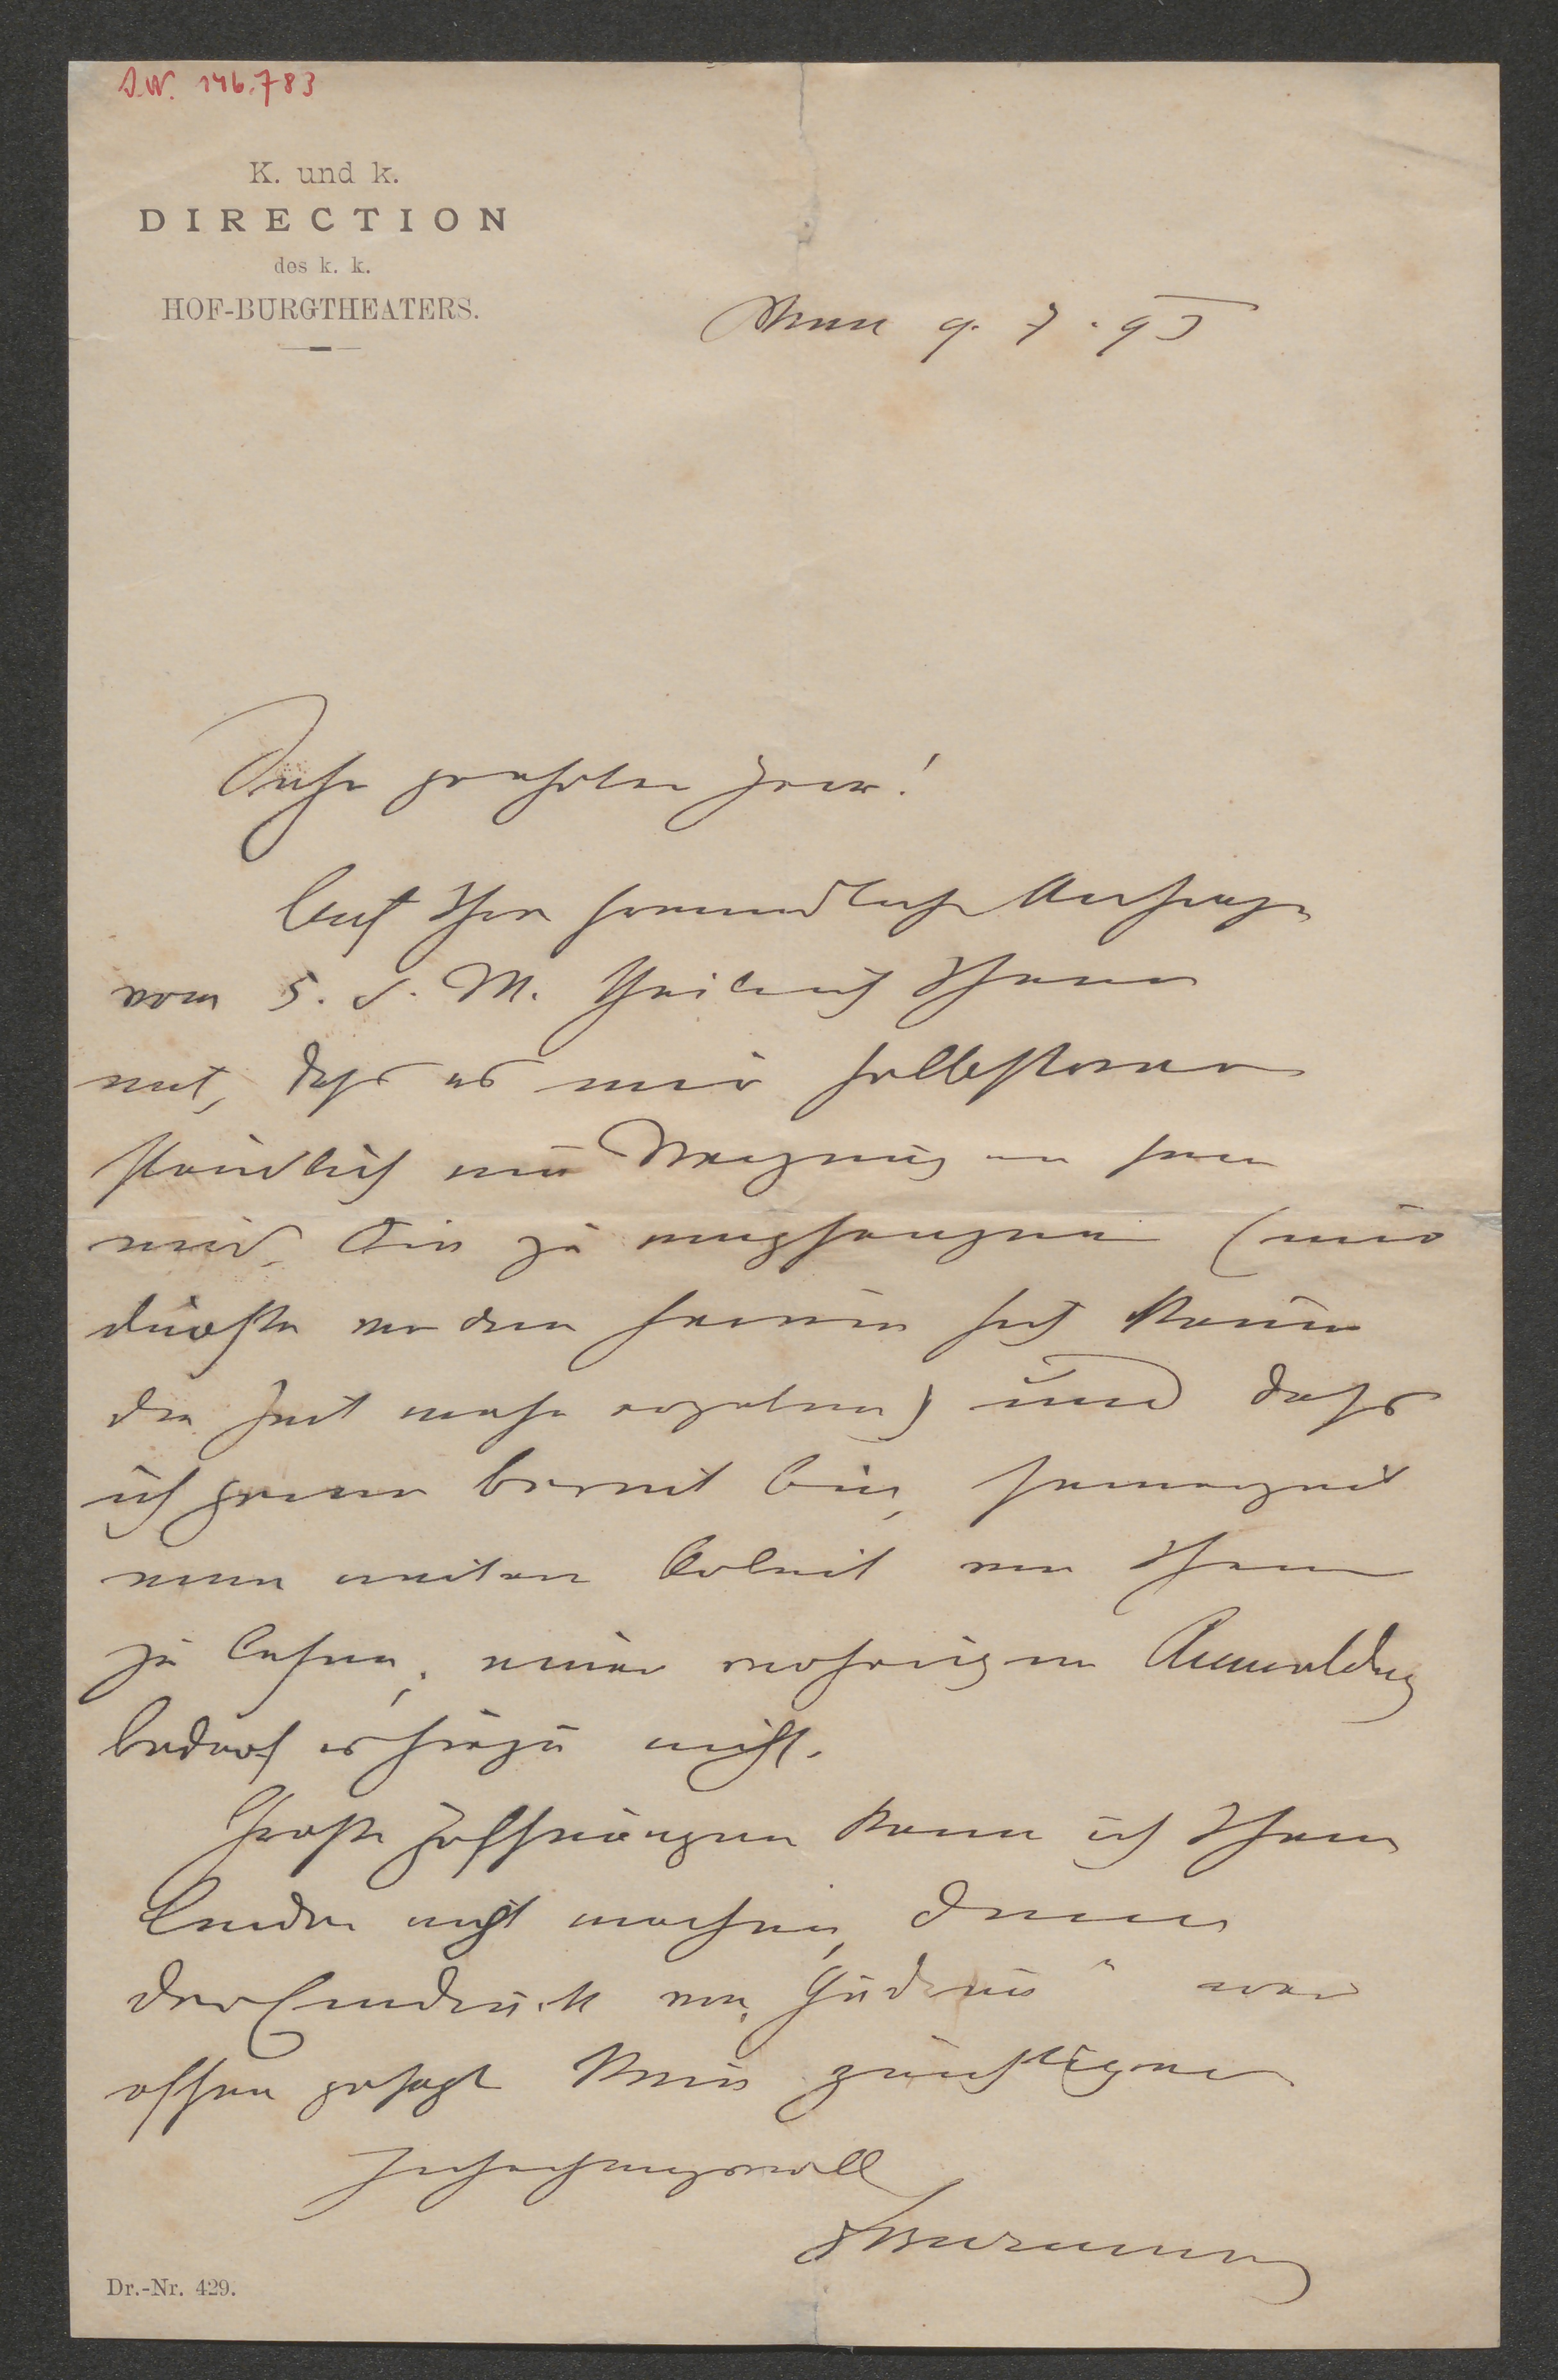 I.N. 146.783
K. und k.
DIRECTION
des k. k.
HOF-BURGTHEATERS.
Wien 9. 7. 95
Sehr geehrter Herr!
Auf Ihre freundliche Anfrage
vom 5. d. M. theile ich Ihnen
mit, dass es mir selbstver-
ständlich ein Vergnügen sein
wird, Sie zu empfangen (nur
dürfte vor dem Herbst sich kaum
die Zeit mehr ergeben) und dass
ich gerne bereit bin, seinerzeit
eine weitere Arbeit von Ihnen
zu lesen; einer vorherigen Anmeldung
bedarf es hiezu nicht.
Große Hoffnungen kann ich Ihnen
leider nicht machen, denn
der Eindruck von „Gudrun" war
offen gesagt kein günstiger
Hochachtungsvoll
Dr.-Nr. 429.